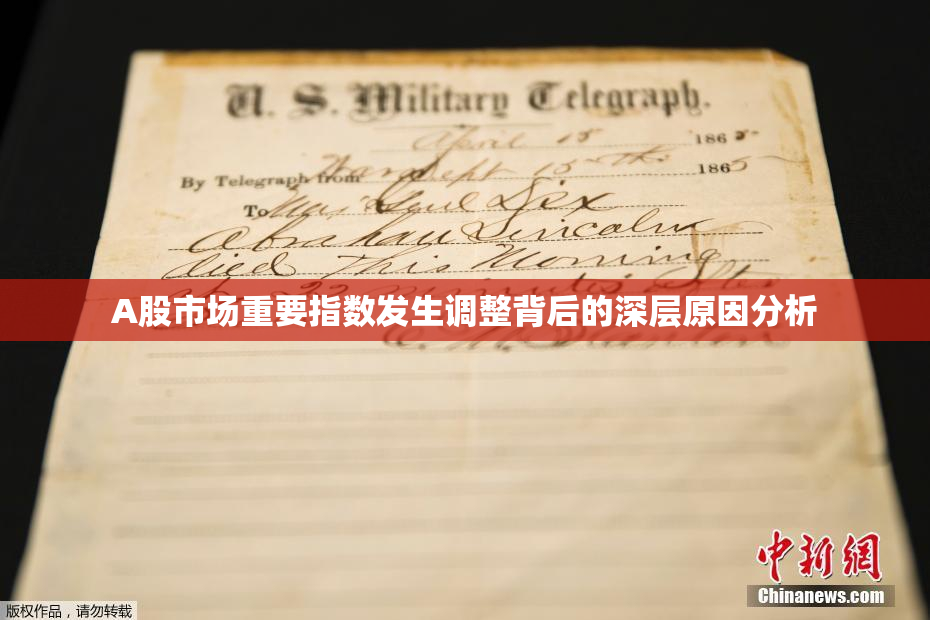 U. S. Military Telegraph.
April 15 1865
By Telegraph from War Dept 15th 1865
To Maj Genl Dix
Abraham Lincoln
died This Morning
at 22 minutes after
A股市场重要指数发生调整背后的深层原因分析
版权作品，请勿转载
中新网
Chinanews.com